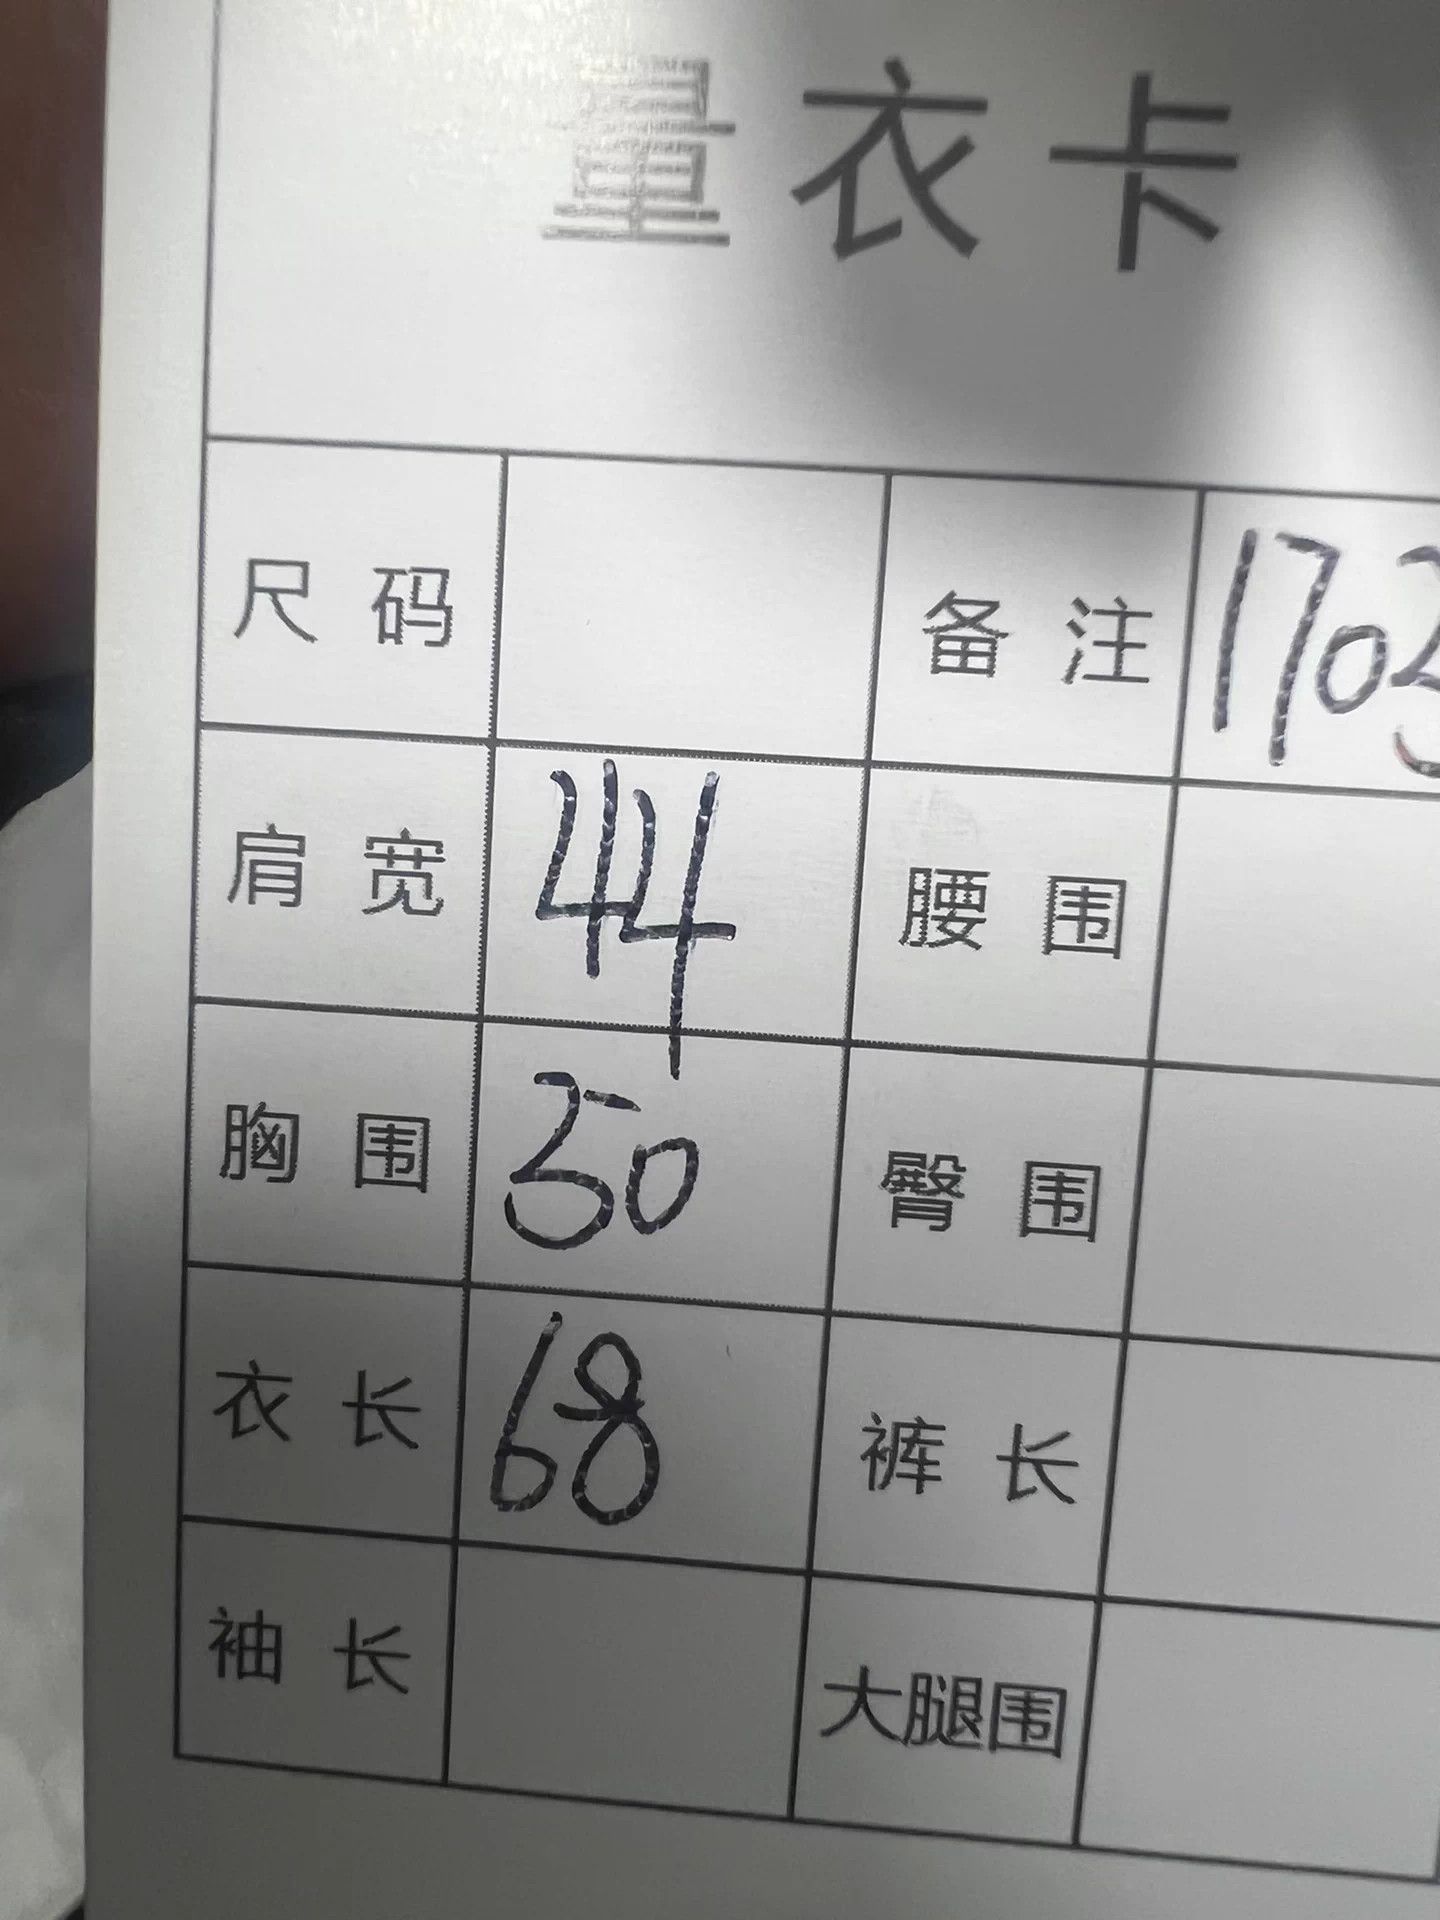 量衣卡
尺码 备注 170
肩宽 44 腰围
胸围 50 臀围
衣长 68 裤长
袖长 大腿围